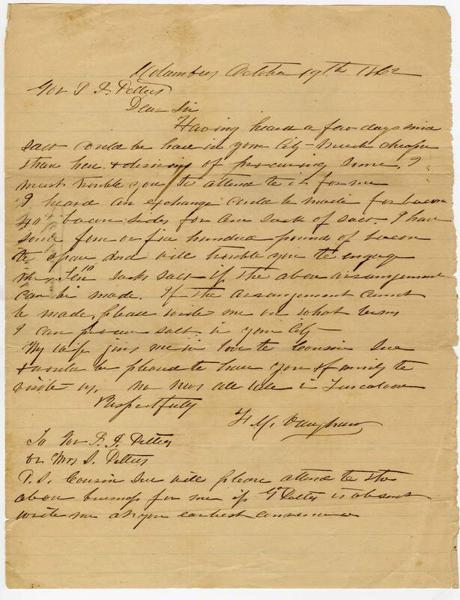 Columbus October 19th 1862
Dear Sir
Having heard a few days since
salt could be had in your City much cheaper
than here & desirous of procuring some, I
must trouble you to attend to it for me
I heard an exchange could be made for bacon
bacon sides for one sack of salt. I have
some four or five hundred pounds of bacon
to spare and will trouble you to engage
me ten sacks salt if the above arrangement
can be made. If the arrangement cannot
be made, please write me on what terms
I can procure salt in your City
My wife joins me in love to Cousin Sue
& would be pleased to have you & family to
visit us. all well in Tuscaloosa
Respectfully
F M. Vaughan
To
or Mrs S. Pettus
P.S. Cousin Sue will please attend to the
above business for me if is absent
write me at your earliest convenience